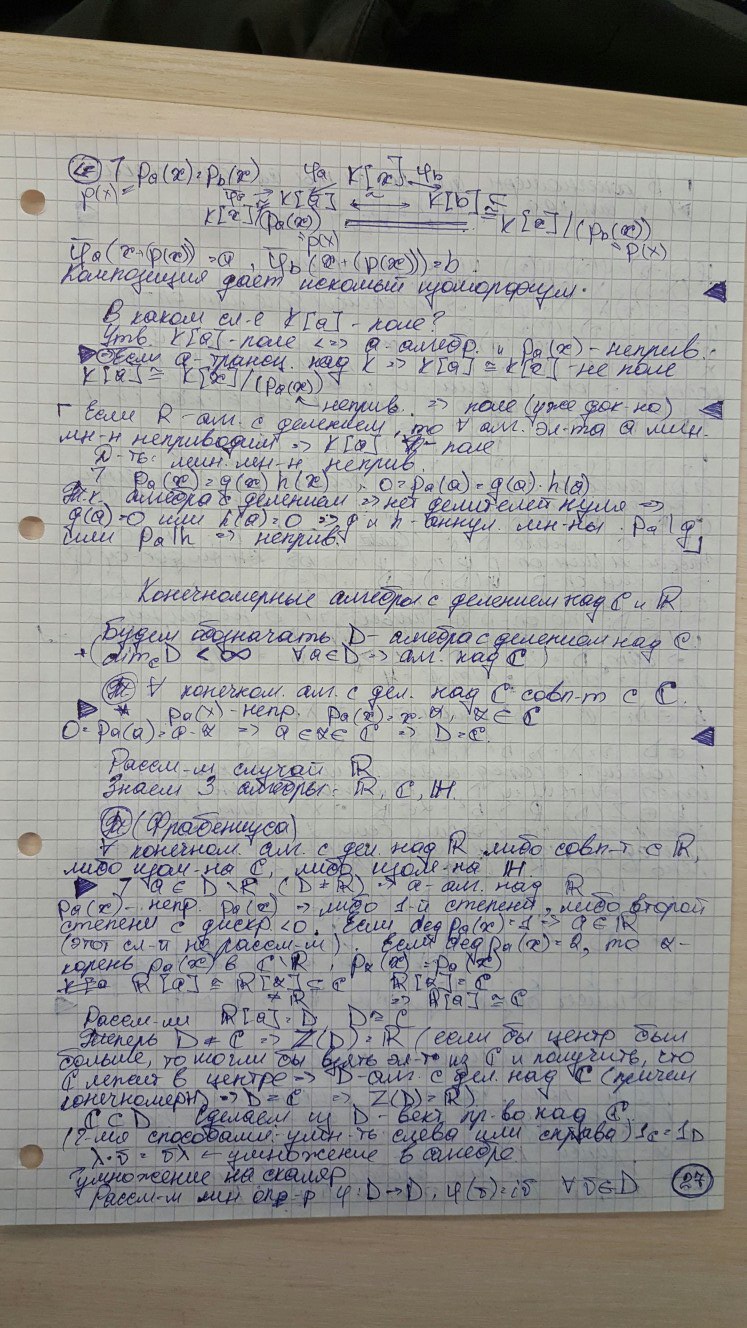 ⇐ ] pₐ(x) = p_b(x)   φₐ K[x] φ_b
p(x) =   φ̄ₐ → K[a] ≃ K[b] ≅
K[x]/(pₐ(x)) K[x]/(p_b(x))
= p(x)   = p(x)
φ̄ₐ(x+(p(x))) = a, φ̄_b(x+(p(x))) = b.
Композиция даёт искомый изоморфизм.
В каком сл-е K[a] - поле?
Утв. K[a] - поле <=> a - алгебр. и pₐ(x) - неприв.
Если a - трансц. над K => K[a] ≅ K[x] - не поле
K[a] ≅ K[x]/(pₐ(x))
неприв. => поле (уже док-но)
Г Если R - алг. с делением, то ∀ алг. эл-та a мин.
мн-н неприводим => K[a] - поле
Д-ть: мин. мн-н неприв.
] pₐ(x) = g(x) h(x), 0 = pₐ(a) = g(a)·h(a)
Т.к. алгебра с делением => нет делителей нуля =>
g(a)=0 или h(a)=0 => g и h - аннул. мн-ны. pₐ | g
или pₐ | h => неприв. ┘
Конечномерные алгебры с делением над ℂ и ℝ
Будем обозначать D - алгебра с делением над ℂ
+ (dim_ℂ D < ∞ ∀ a ∈ D => алг. над ℂ)
Т ∀ конечном. алг. с дел. над ℂ совп-т с ℂ.
pₐ(x) - непр. pₐ(x) = x-α, α ∈ ℂ
0 = pₐ(a) = a-α => a = α ∈ ℂ => D = ℂ.
Рассм-м случай ℝ.
Знаем 3 алгебры: ℝ, ℂ, ℍ.
Т (Фробениуса)
∀ конечном. алг. с дел. над ℝ либо совп-т с ℝ,
либо изом-на ℂ, либо изом-на ℍ.
] a ∈ D\ℝ (D ≠ ℝ) => a - алг. над ℝ
pₐ(x) - непр. pₐ(x) => либо 1-й степени, либо второй
степени с дискр < 0. Если deg pₐ(x) = 1 => a ∈ ℝ
(этот сл-й не рассм-м). Если deg pₐ(x) = 2, то α -
корень pₐ(x) в ℂ\ℝ, p_α(x) = pₐ(x)
ℝ[a] ≅ ℝ[α] ⊆ ℂ   ℝ[α] = ℂ
≠ ℝ   => ℝ[a] ≅ ℂ
Рассм-ли ℝ[a] = D   D ≅ ℂ
Теперь D ≠ ℂ => Z(D) = ℝ (если бы центр был
больше, то могли бы взять эл-т из ℂ и получить, что
ℂ лежит в центре => D - алг. с дел. над ℂ (причём
конечномерн) => D = ℂ => Z(D) = ℝ)
ℂ ⊂ D   Сделаем из D - вект. пр-во над ℂ.
(2-мя способами: умн-ть слева или справа) 1_ℂ = 1_D
λ·v̄ = v̄λ ← умножение в алгебре
умножение на скаляр
Рассм-м лин. опер-р φ: D→D, φ(v̄) = iv̄ ∀ v̄ ∈ D
27